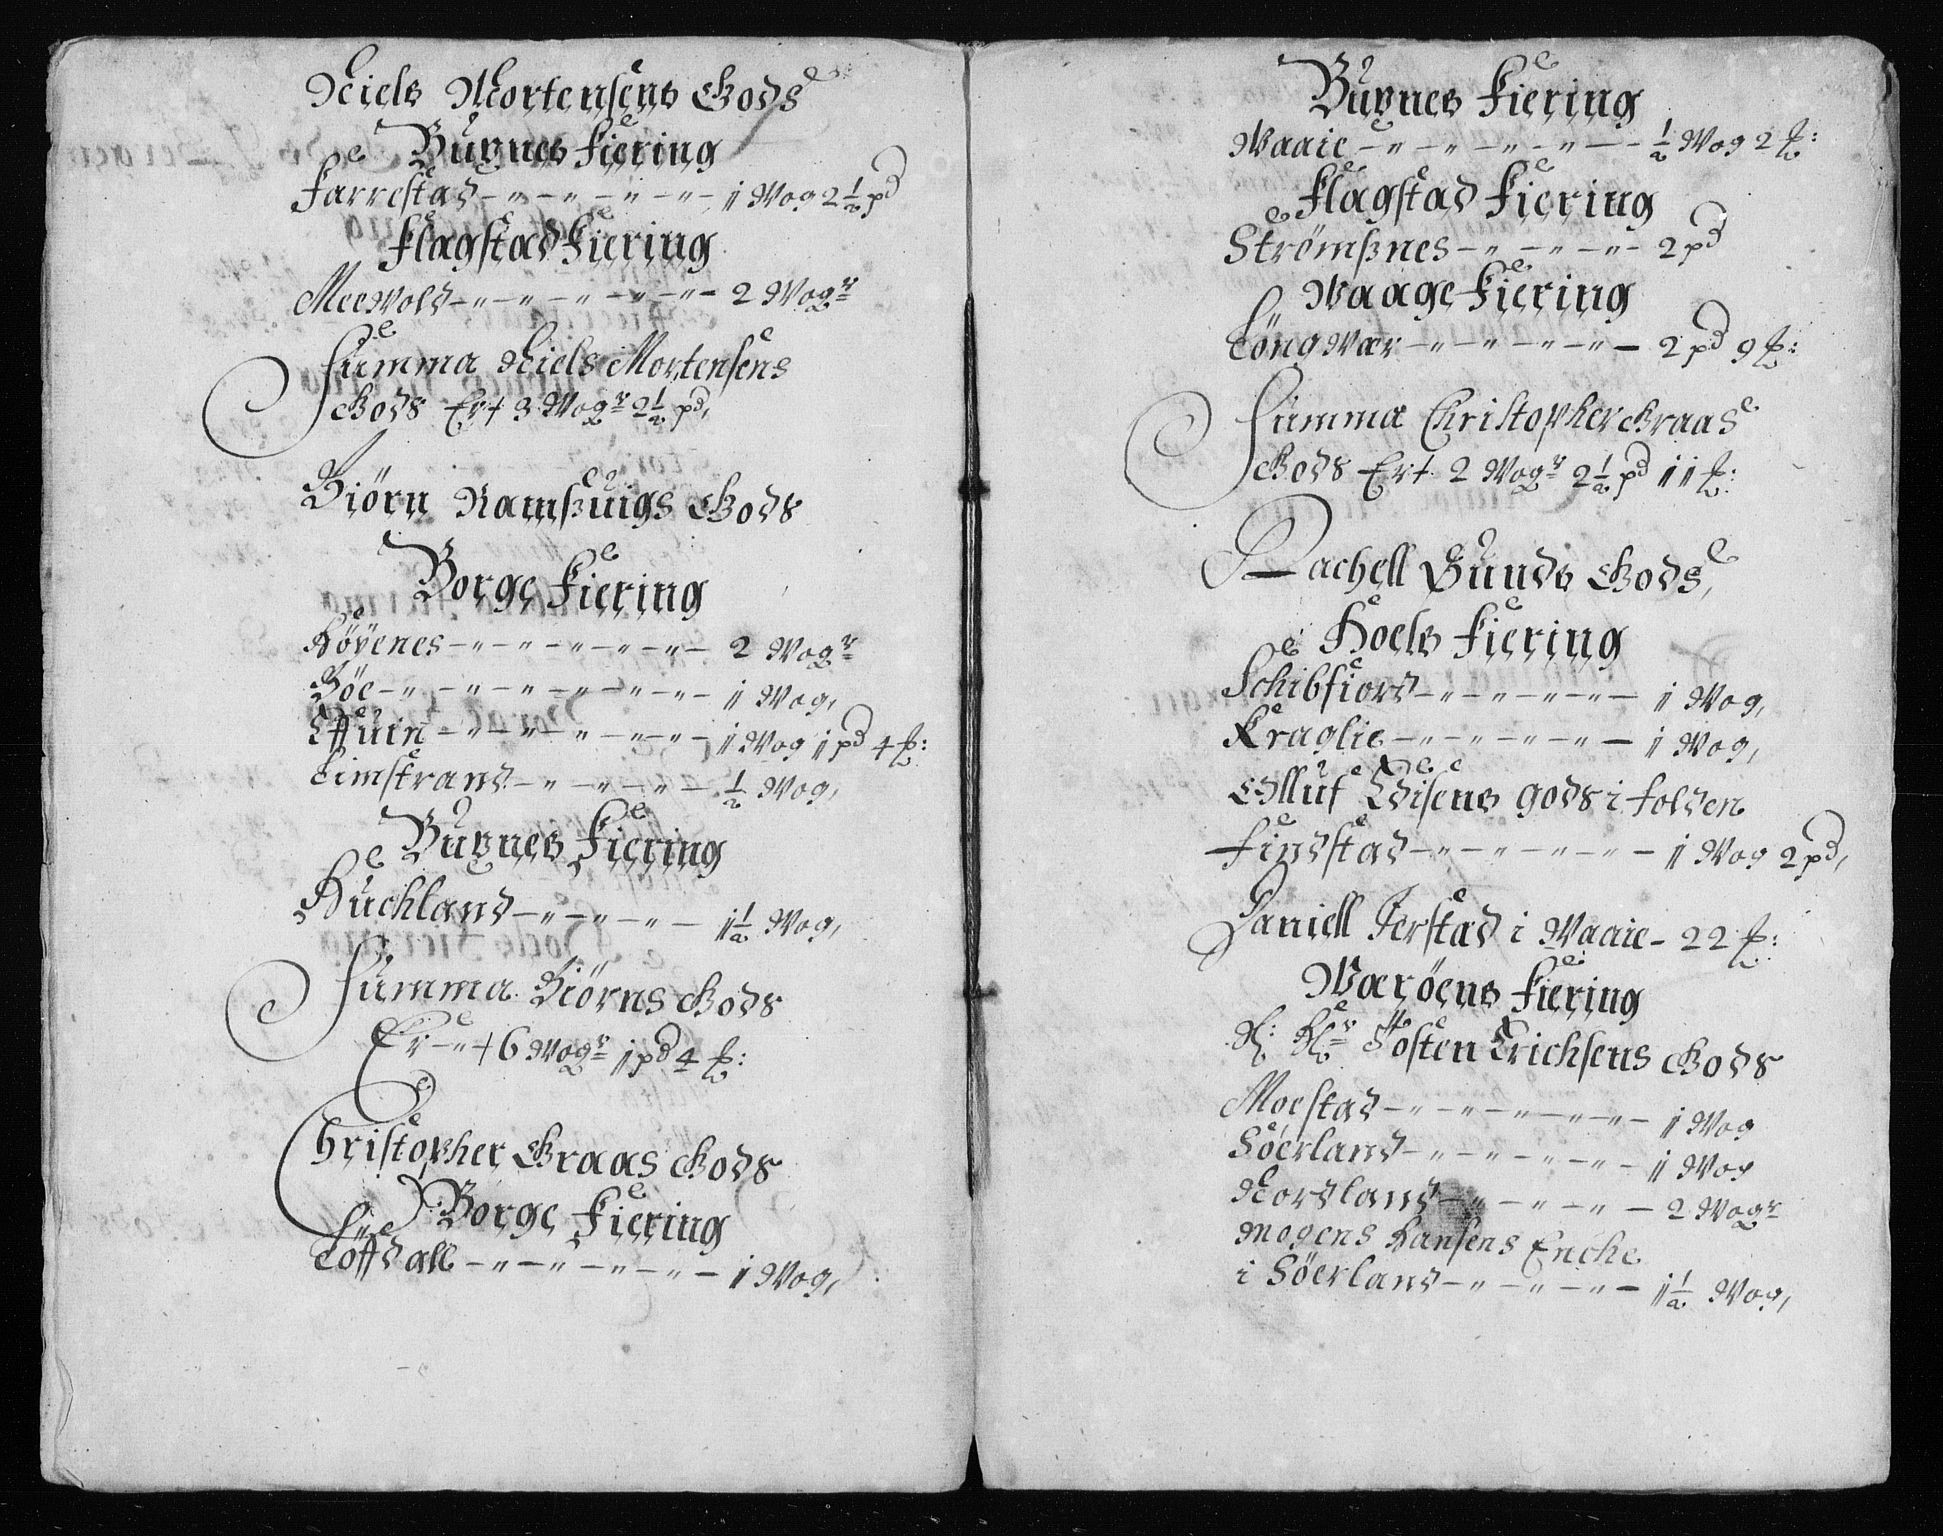 Niels Mortensens Gods
Buxnes Fiering
Farrestad -"-"-"-"- 1 Wog 2 ½ pd
Flagstad Fiering
Meewold -"-"-"-"-"- 2 Wogr
Summa Niels Mortensens
Gods Er+ 3 Wogr 2½ pd,
Biörn Ramsßuigs Gods
Borge Fiering
Höyenes -"-"-"-"-"- 2 Wogr
Böe -"-"-"-"-"-"- 1 Wog,
-"-"-"-"-"- 1 Wog 1 pd 4 ℔:
Limstrand -"-"-"- ½ Wog,
Buxnes Fiering
Huchland -"-"-"- 1½ Wog,
Summa Biörns Gods
Er -"+ 6 Wogr 1 pd 4 ℔:
Christopher Graas Gods
Borge Fiering
-"-"-"-"- 1 Wog,
Buxnes Fiering
Waaie -"-"-"-"- ½ Wog 2 ℔:
Flagstad Fiering
Strömßnes -"-"-"- 2 pd
Waage Fiering
Löngwær -"-"-"-"- 2 pd 9 ℔:
Summa Christopher Graas
Gods Er+ 2 Wogr 2½ pd 11 ℔:
Rachell Bunds Gods,
Hoels Fiering
Schibfiord -"-"-"-"- 1 Wog,
Kraglie -"-"-"-"- 1 Wog,
Olluf gods i folden
Findstad -"-"-"-"- 1 Wog 2 pd,
Daniell Ierstad i Waaie - 22 ℔:
Wæröens Fiering
Hr Josten Erichsens Gods
Moestad -"-"-"-"-"- 1 Wog
Söerland -"-"-"-"- 1 Wog
Nordland -"-"-"- 2 Wogr
Mogens Hansens Encke
i Söerland -"-"-"-"- 1½ Wog,